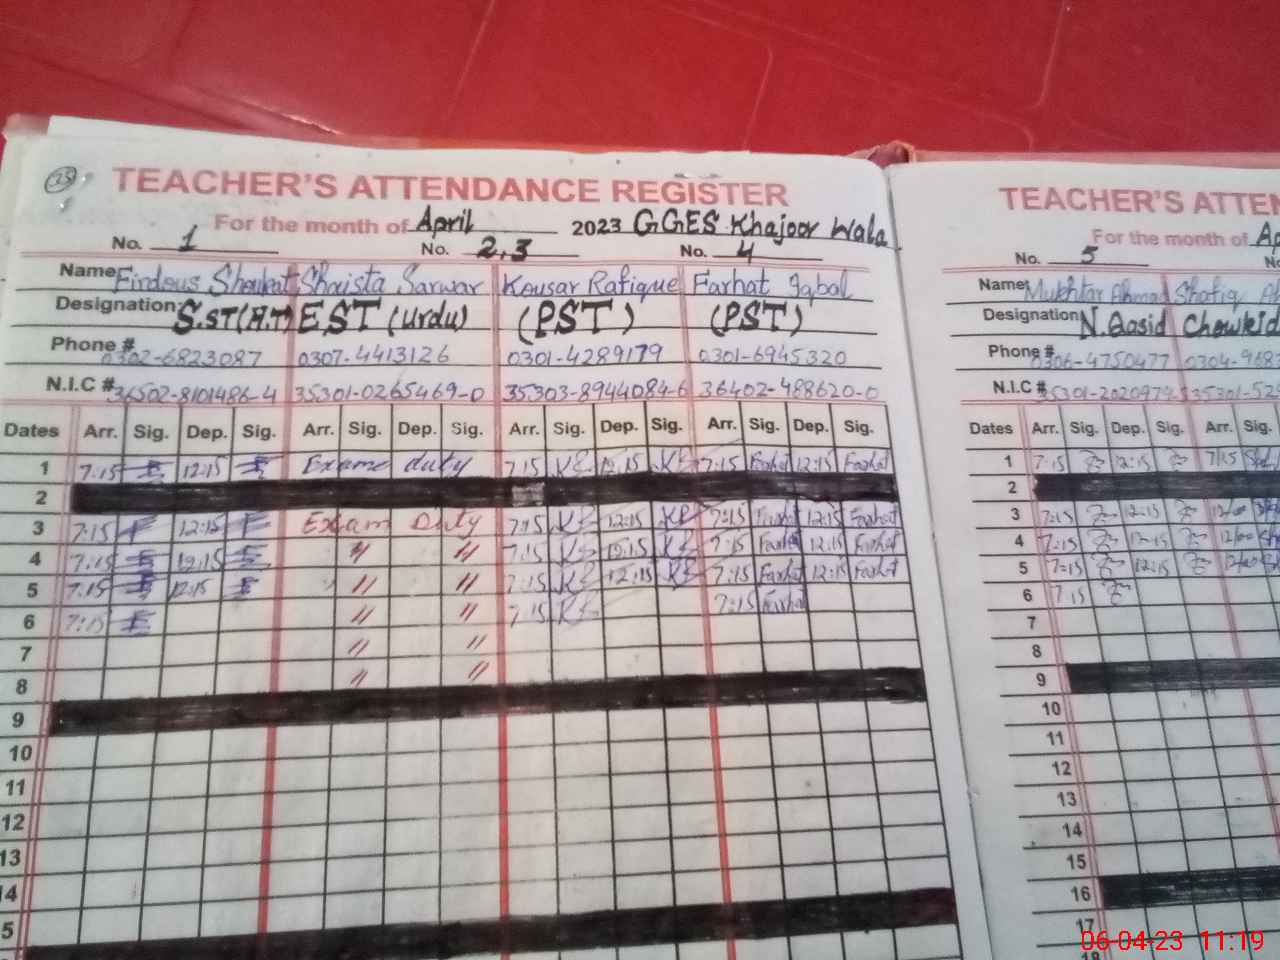 25
TEACHER'S ATTENDANCE REGISTER
For the month of April 2023 GGES Khajoor Wala
No. 1 No. 2,3 No. 4
Name Firdous Shoukat Shaista Sarwar Kousar Rafique Farhat Iqbal
Designation: S.ST(H.T) EST (Urdu) (PST) (PST)
Phone # 0302-6823087 0307-4413126 0301-4289179 0301-6945320
N.I.C # 36502-8101486-4 35301-0265469-0 35303-8944084-6 36402-488620-0
Dates Arr. Sig. Dep. Sig. Arr. Sig. Dep. Sig. Arr. Sig. Dep. Sig. Arr. Sig. Dep. Sig.
1 7:15 12:15 Exame duty 7:15 12:15 7:15 Farhat 12:15 Farhat
2
3 7:15 12:15 Exam Duty 7:15 12:15 7:15 Farhat 12:15 Farhat
4 7:15 12:15 〃 〃 7:15 12:15 7:15 Farhat 12:15 Farhat
5 7:15 12:15 〃 〃 7:15 12:15 7:15 Farhat 12:15 Farhat
6 7:15 〃 〃 7:15 7:15 Farhat
7 〃 〃
8 〃 〃
9
10
11
12
13
14
5
TEACHER'S ATTEN
For the month of Ap
No. 5 No
Name: Mukhtar Ahmad Shafiq
Designation: N.Qasid Chowkid
Phone # 0306-4750477 0304-968
N.I.C # 35301-2020979 35301-52
Dates Arr. Sig. Dep. Sig. Arr. Sig.
1 7:15 12:15 7:15
2
3 7:15 12:15 12/00
4 7:15 12:15 12/00
5 7:15 12:15 12/00
6 7:15
7
8
9
10
11
12
13
14
15
16
17
18
06-04-23 11:19